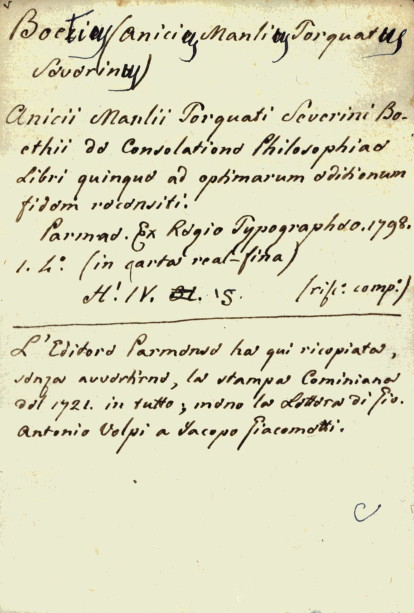 Boetius (Anicius Manlius Torquatus
Severinus)
Anicii Manlii Torquati Severini Bo-
ethii de Consolatione Philosophiae
Libri quinque ad optimarum editionum
fidem recensiti.
Parmae. Ex Regio Typographeo. 1798.
1. 4.° (in carta real-fina)
H.! IV. 15. (rifc. comp.)
L'Editore Parmense ha qui ricopiata,
senza avvertirne, la stampa Cominiana
del 1721. in tutto; meno la Lettera di Gio.
Antonio Volpi a Jacopo Giacometti.
C